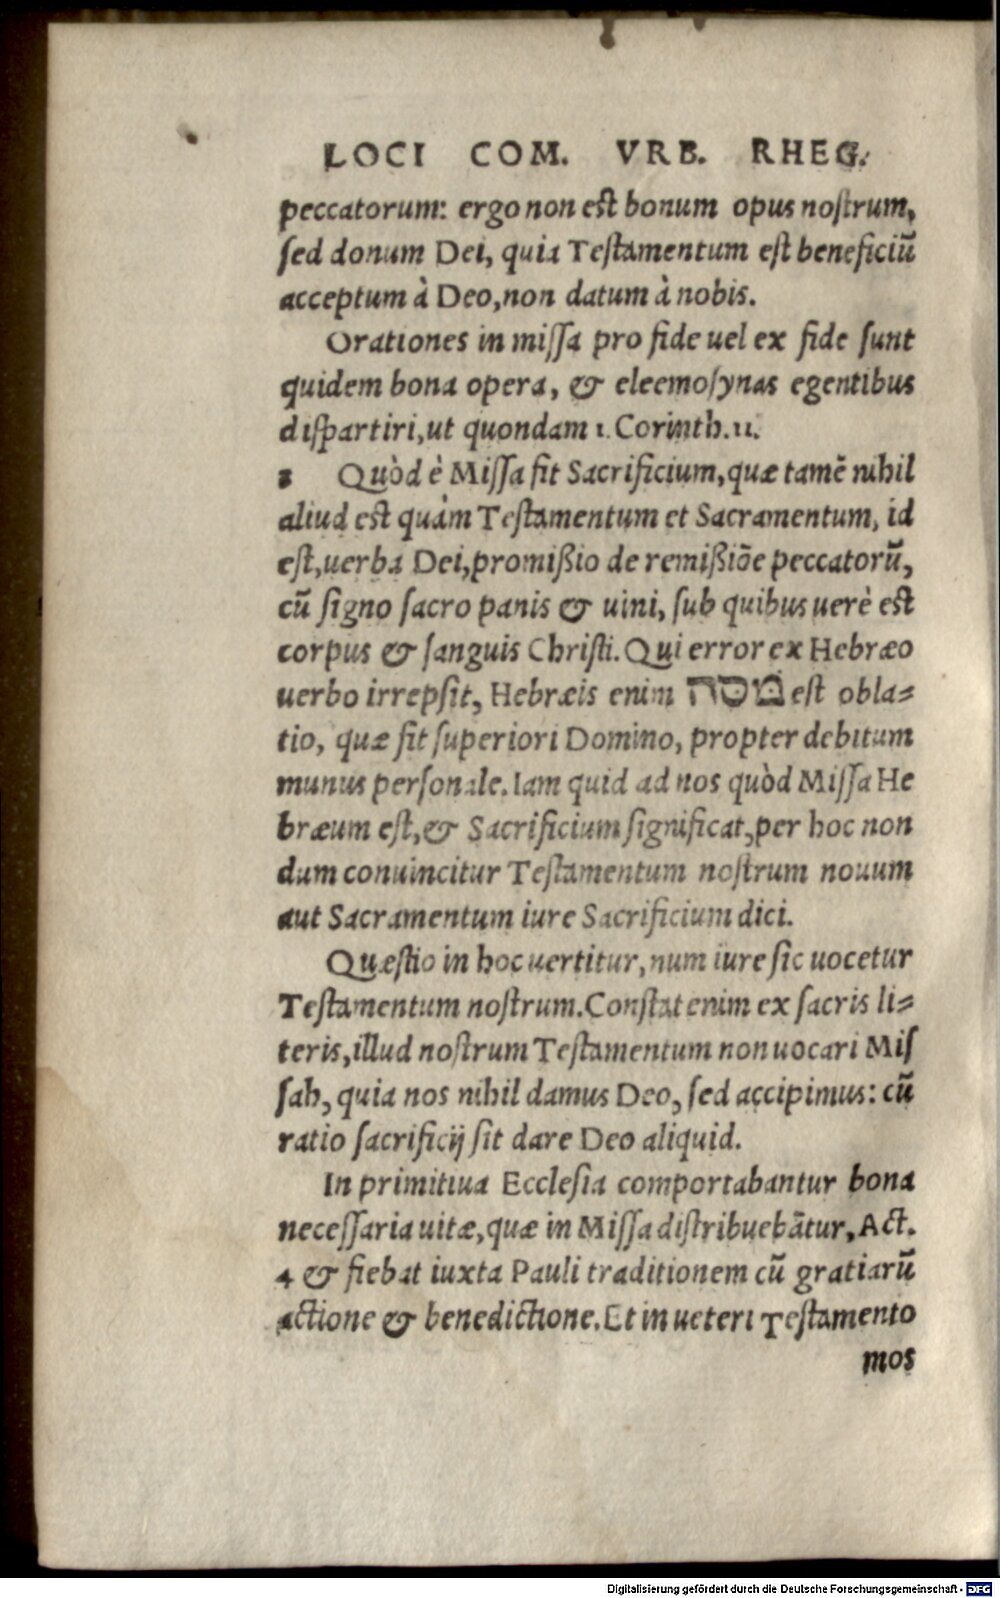 LOCI COM. VRB. RHEG.
peccatorum: ergo non est bonum opus nostrum,
sed donum Dei, quia Testamentum est beneficiũ
acceptum à Deo, non datum à nobis.
Orationes in missa pro fide uel ex fide sunt
quidem bona opera, & eleemosynas egentibus
dispartiri, ut quondam 1. Corinth. 11.
Quòd è Missa fit Sacrificium, quæ tamẽ nihil
aliud est quàm Testamentum et Sacramentum, id
est, uerba Dei, promißio de remißiõe peccatorũ,
cũ signo sacro panis & uini, sub quibus uerè est
corpus & sanguis Christi. Qui error ex Hebræo
uerbo irrepsit, Hebræis enim מסה est obla⸗
tio, quæ fit superiori Domino, propter debitum
munus personale. Iam quid ad nos quòd Missa He
bræum est, & Sacrificium significat, per hoc non
dum conuincitur Testamentum nostrum nouum
aut Sacramentum iure Sacrificium dici.
Quæstio in hoc uertitur, num iure sic uocetur
Testamentum nostrum. Constat enim ex sacris li⸗
teris, illud nostrum Testamentum non uocari Mis
sah, quia nos nihil damus Deo, sed accipimus: cũ
ratio sacrificij sit dare Deo aliquid.
In primitiua Ecclesia comportabantur bona
necessaria uitæ, quæ in Missa distribuebãtur, Act.
4 & fiebat iuxta Pauli traditionem cũ gratiarũ
actione & benedictione. Et in ueteri Testamento
mos
Digitalisierung gefördert durch die Deutsche Forschungsgemeinschaft - DFG